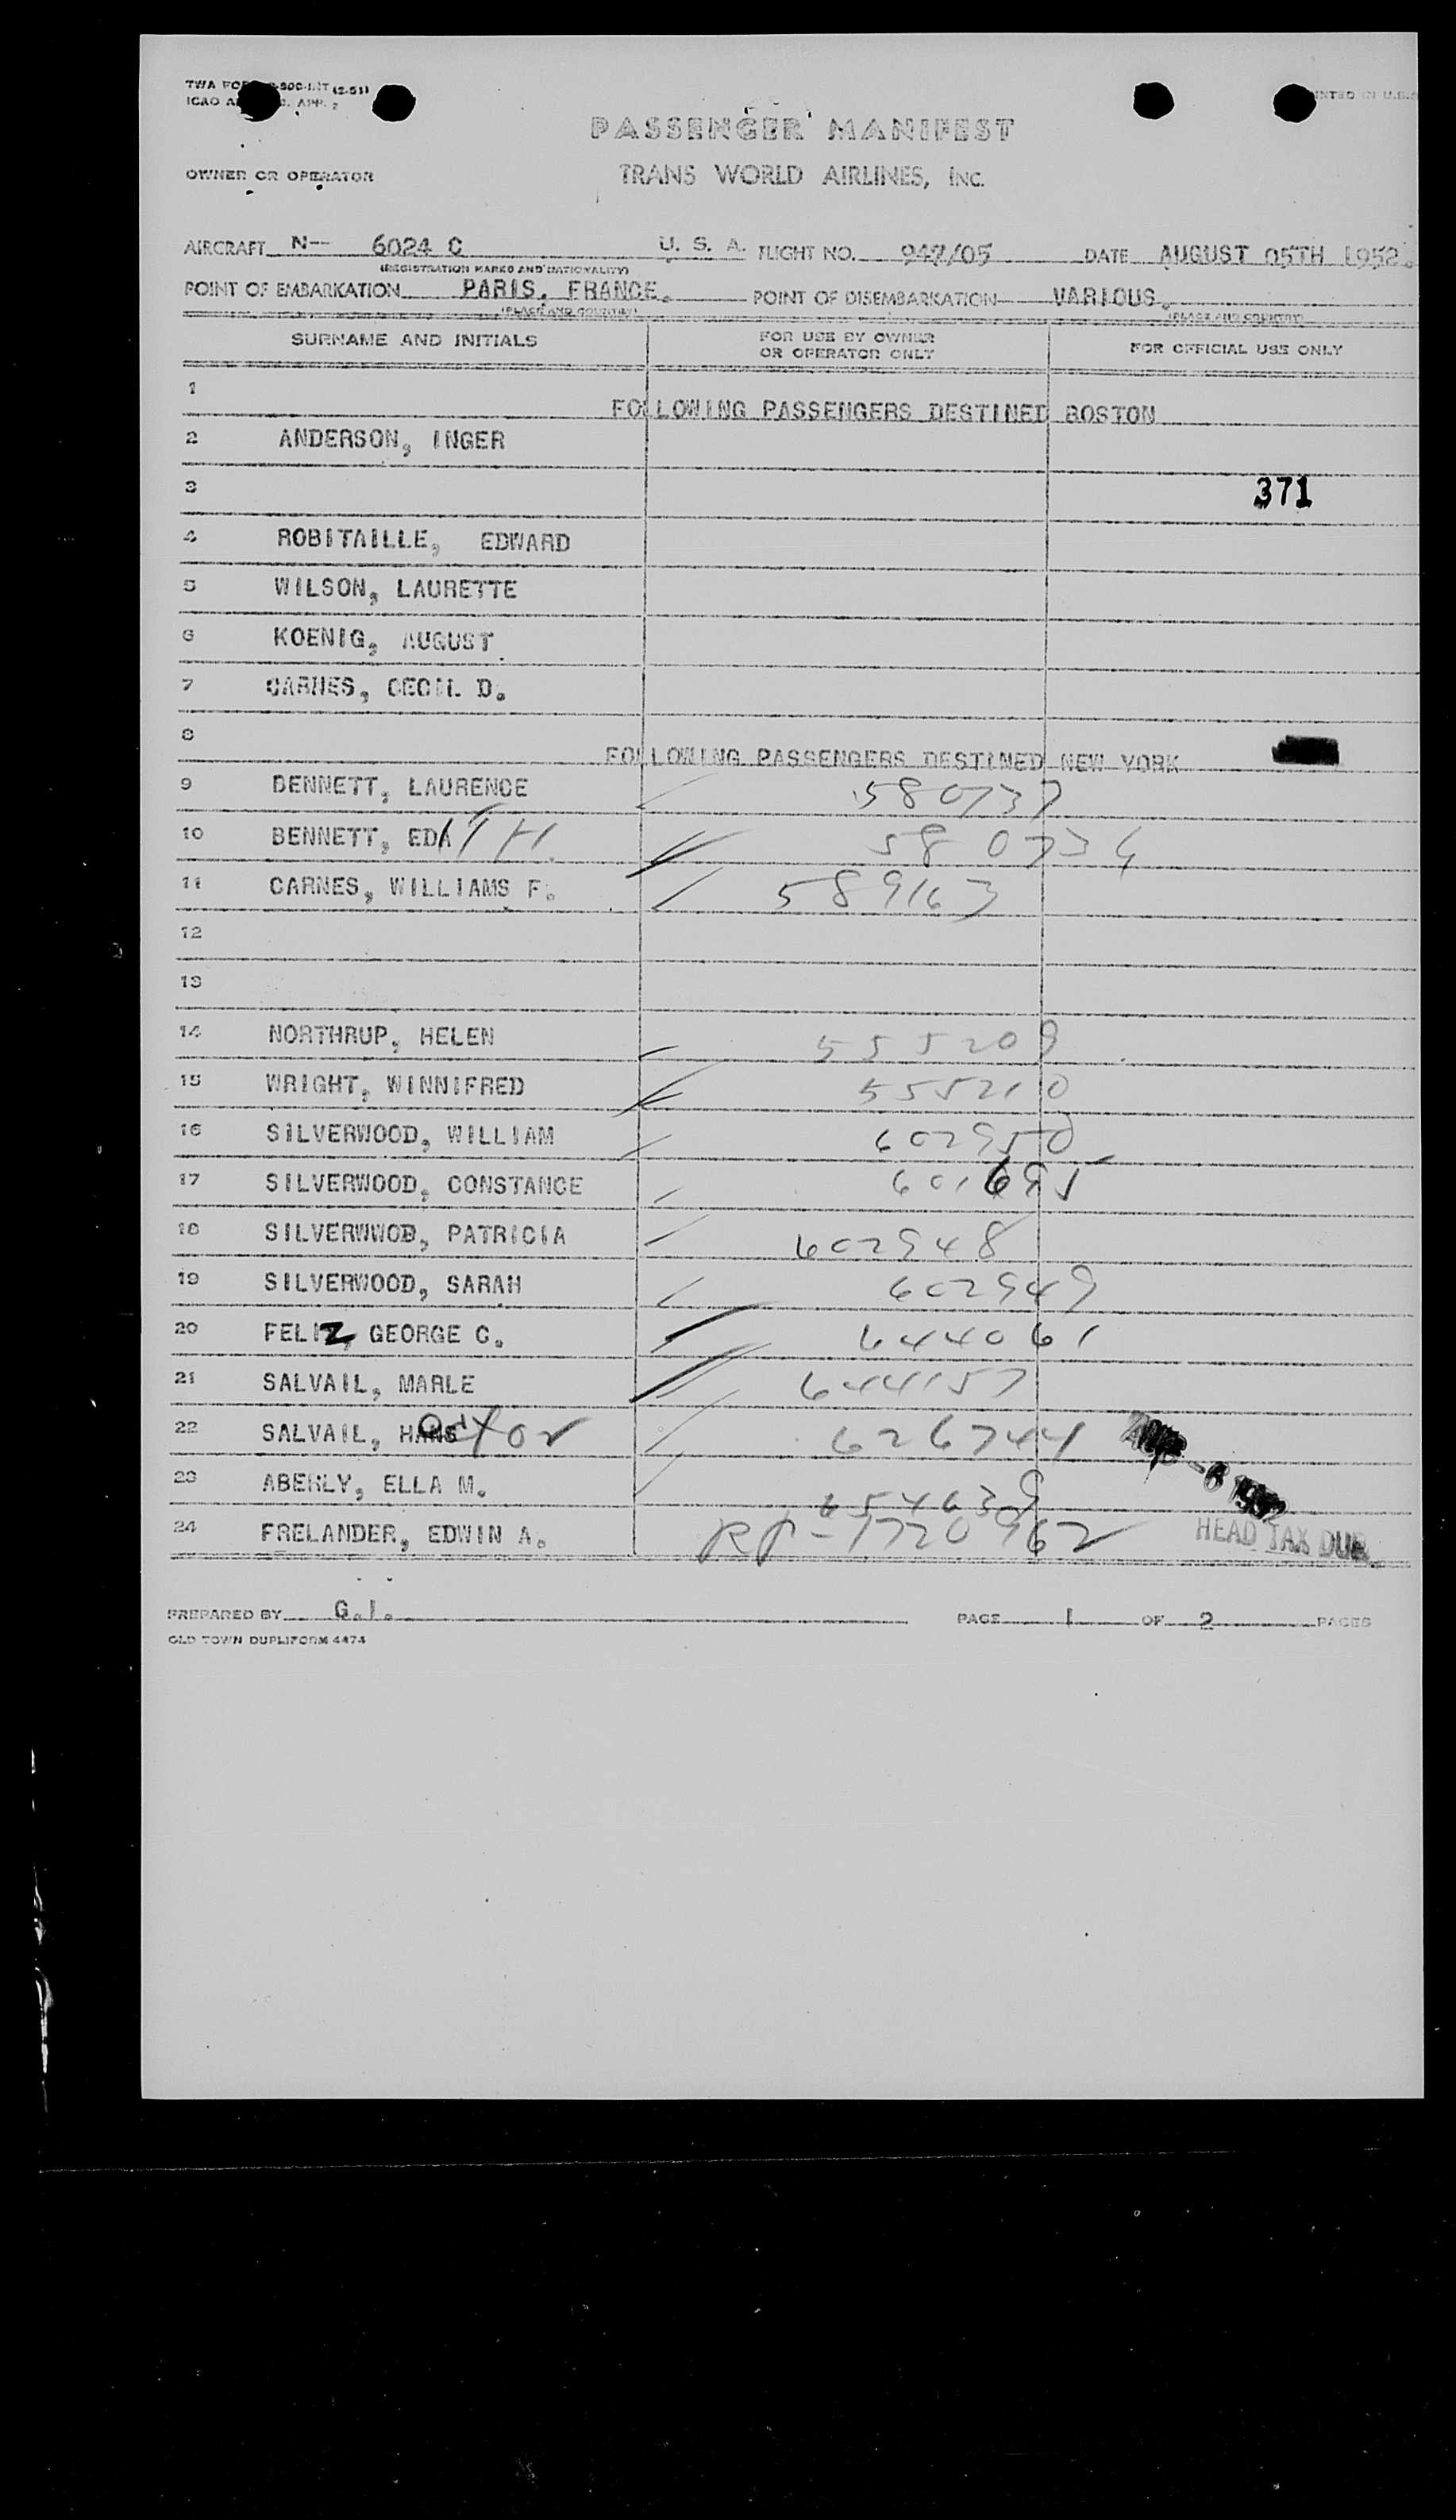 ICAO
PRINTED IN U.S.A.
PASSENGER MANIFEST
OWNER OR OPERATOR
TRANS WORLD AIRLINES, INC.
AIRCRAFT N-- 6024 C U. S. A. FLIGHT NO. 947/05 DATE AUGUST 05TH 1952.
(REGISTRATION MARKS AND NATIONALITY)
POINT OF EMBARKATION PARIS, FRANCE. POINT OF DISEMBARKATION VARIOUS.
(PLACE AND COUNTRY) (PLACE AND COUNTRY)
SURNAME AND INITIALS FOR USE BY OWNER OR OPERATOR ONLY FOR OFFICIAL USE ONLY
1 FOLLOWING PASSENGERS DESTINED BOSTON
2 ANDERSON, INGER
3 371
4 ROBITAILLE, EDWARD
5 WILSON, LAURETTE
6 KOENIG, AUGUST
7 CARNES, CECIL D.
8 FOLLOWING PASSENGERS DESTINED NEW YORK
9 BENNETT, LAURENCE 580737
10 BENNETT, EDITH 580736
11 CARNES, WILLIAMS F. 589163
12
13
14 NORTHRUP, HELEN 555209
15 WRIGHT, WINNIFRED 555210
16 SILVERWOOD, WILLIAM 602950
17 SILVERWOOD, CONSTANCE 601695
18 SILVERWWOD, PATRICIA 602948
19 SILVERWOOD, SARAH 602949
20 FELIZ, GEORGE C. 644061
21 SALVAIL, MARLE 644157
22 SALVAIL, 626744
23 ABERLY, ELLA M. 654639
24 FRELANDER, EDWIN A. RP-1720962 HEAD TAX DUE
PREPARED BY G.I. PAGE 1 OF 2 PAGES
OLD TOWN DUPLIFORM 4474